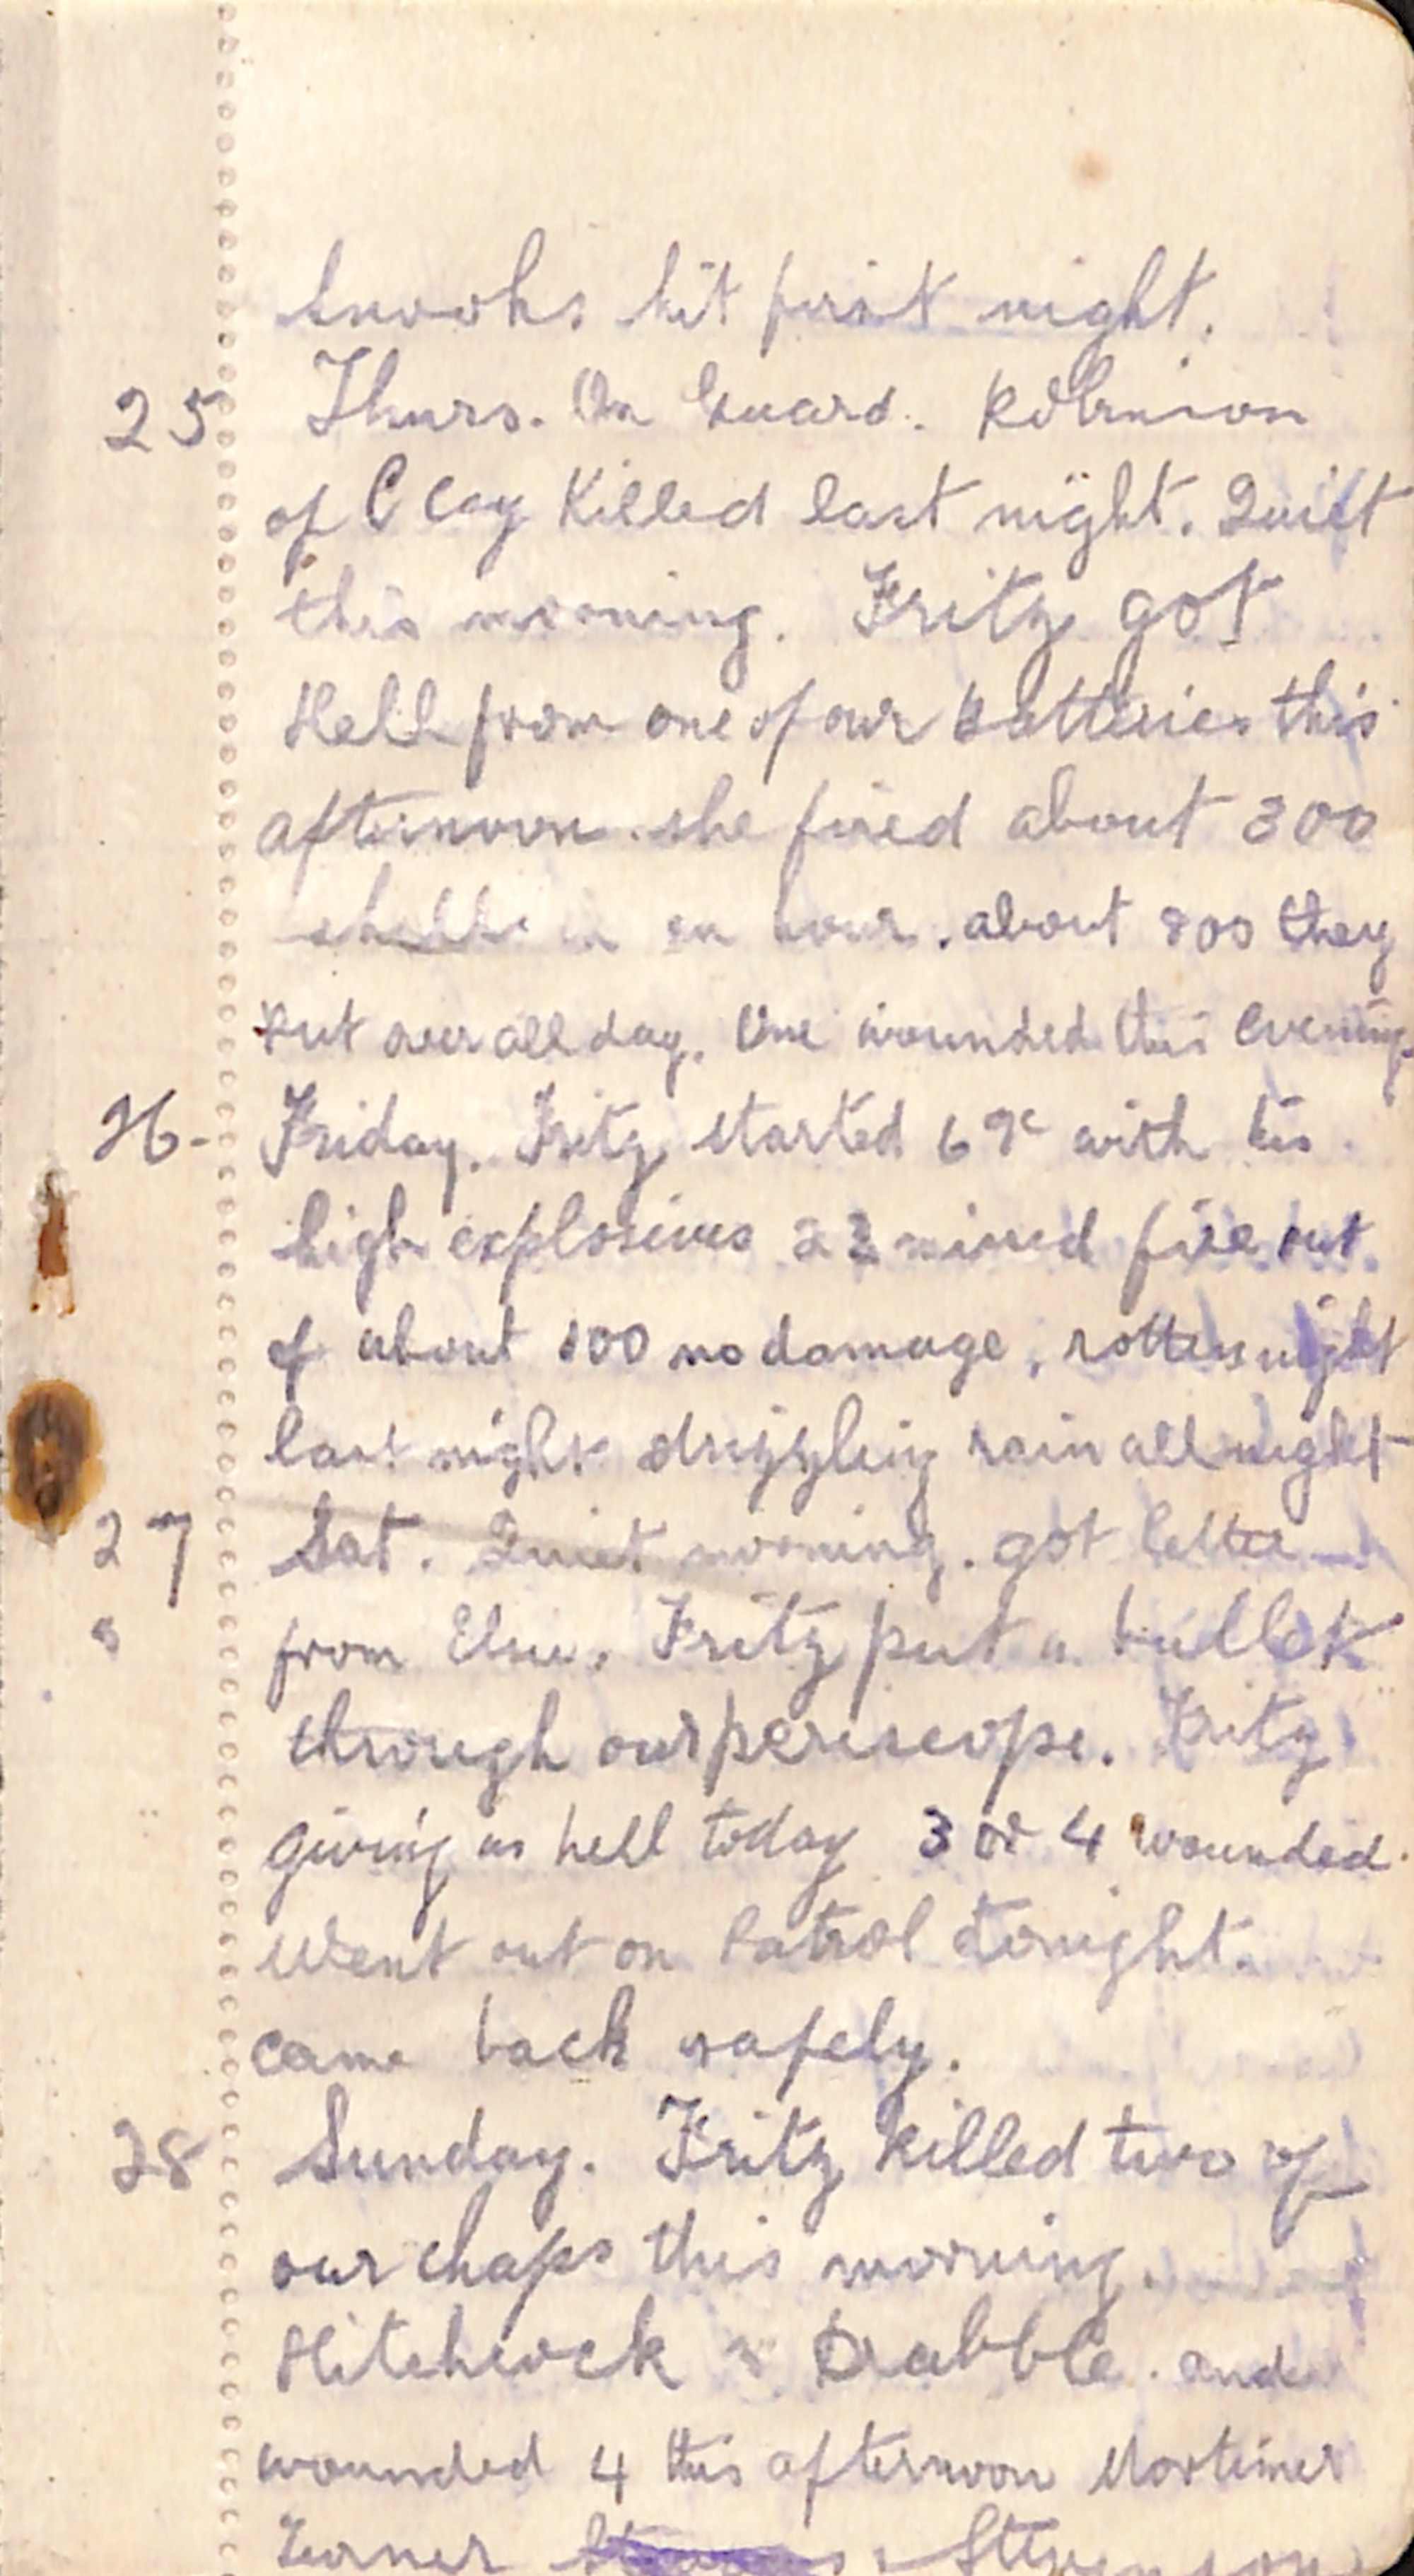 Snooks hit first night.
25 Thurs. On Guard. Robinson
of C Coy Killed last night. Quiet
this morning. Fritz got
Hell from one of our batteries this
afternoon. she fired about 300
shells in an hour. about 800 they
put over all day. One wounded this evening.
26- Friday. Fritz started 6 with his
high explosives 22 missed fire out
of about 100 no damage, rotten night
last night drizzling rain all night
27 Sat. Quiet morning. got letter
from Elsie. Fritz put a bullet
through our periscope. Fritz
giving us hell today 3 or 4 wounded.
Went out on Patrol tonight.
came back safely.
28 Sunday. Fritz killed two of
our chaps this morning.
Hitchcock & Drabble. and
wounded 4 this afternoon Mortimer
Turner Stevenson